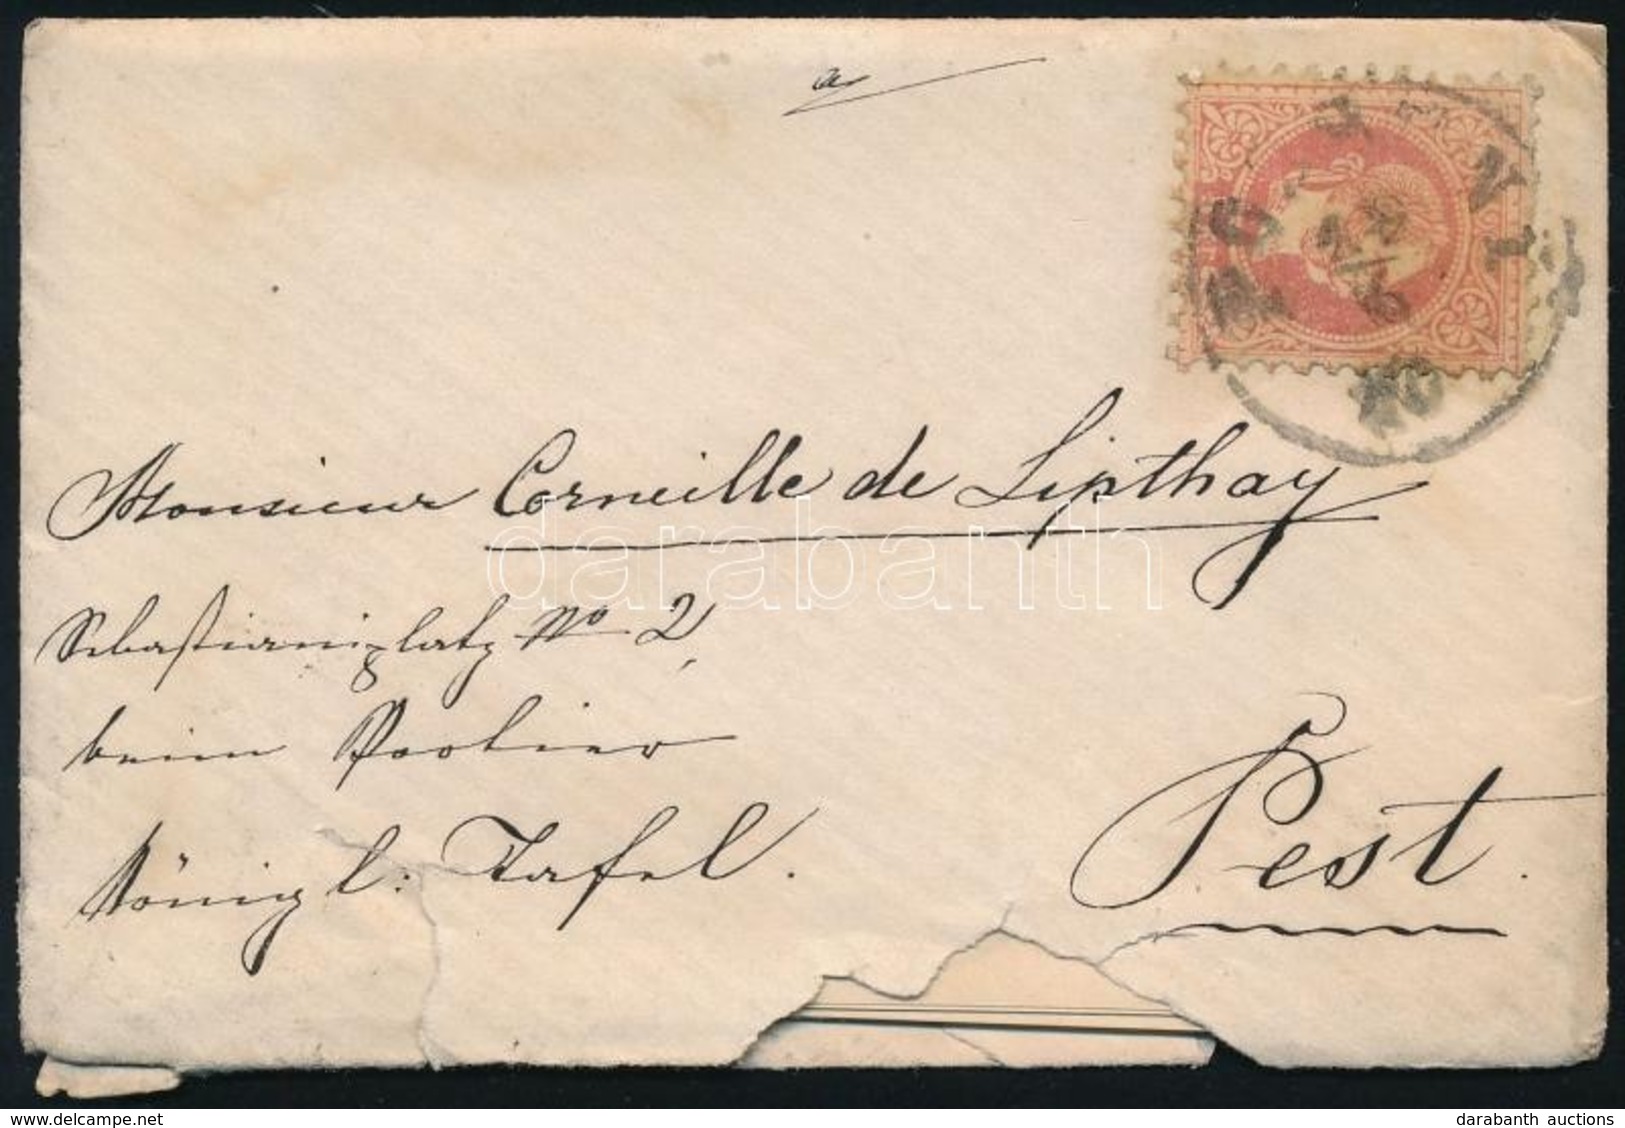 a
Monsieur Corneille de Lipthay
Sebastianiplatz No 2,
beim Portier
Königl: Tafel.
Pest.
darabanth
www.darabanth.com
darabanth auctions